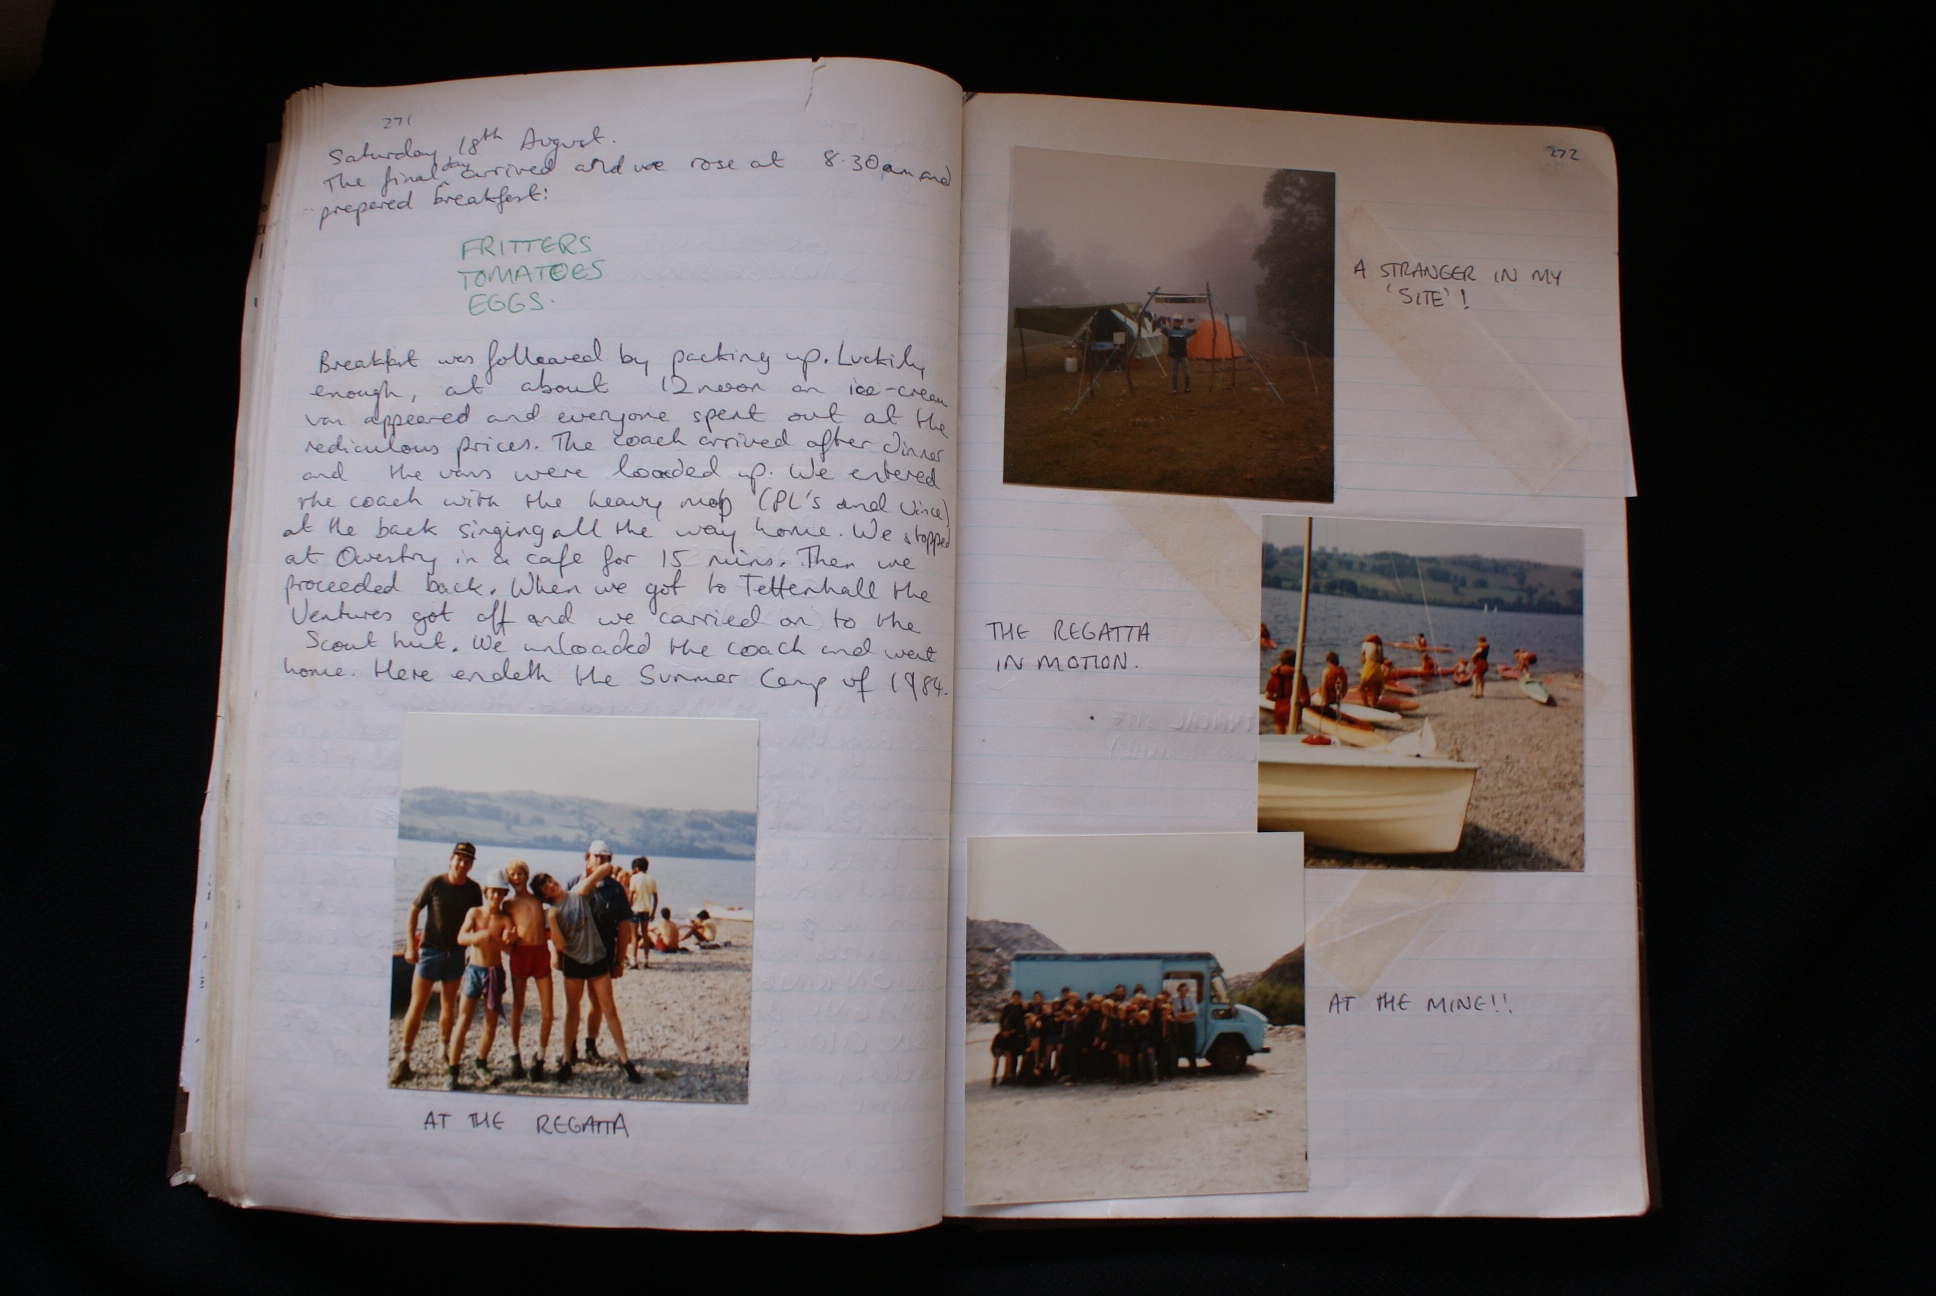 271
Saturday 18th August.
The final day arrived and we rose at 8.30am and
prepared breakfast:
FRITTERS
TOMATOES
EGGS.
Breakfast was followed by packing up. Luckily
enough, at about 12 noon an ice-cream
van appeared and everyone spent out at the
rediculous prices. The coach arrived after dinner
and the vans were loaded up. We entered
the coach with the heavy mob (PL's and Vince)
at the back singing all the way home. We stopped
at Owestry in a cafe for 15 mins. Then we
proceeded back. When we got to Tettenhall the
Ventures got off and we carried on to the
Scout hut. We unloaded the coach and went
home. Here endeth the Summer Camp of 1984.
AT THE REGATTA
272
A STRANGER IN MY
'SITE'!
THE REGATTA
IN MOTION.
AT THE MINE!!